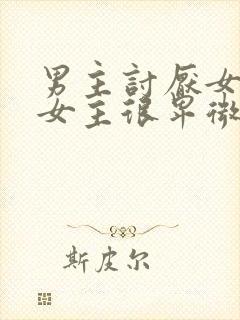 男主討厭女
女主很卑微
斯皮尔